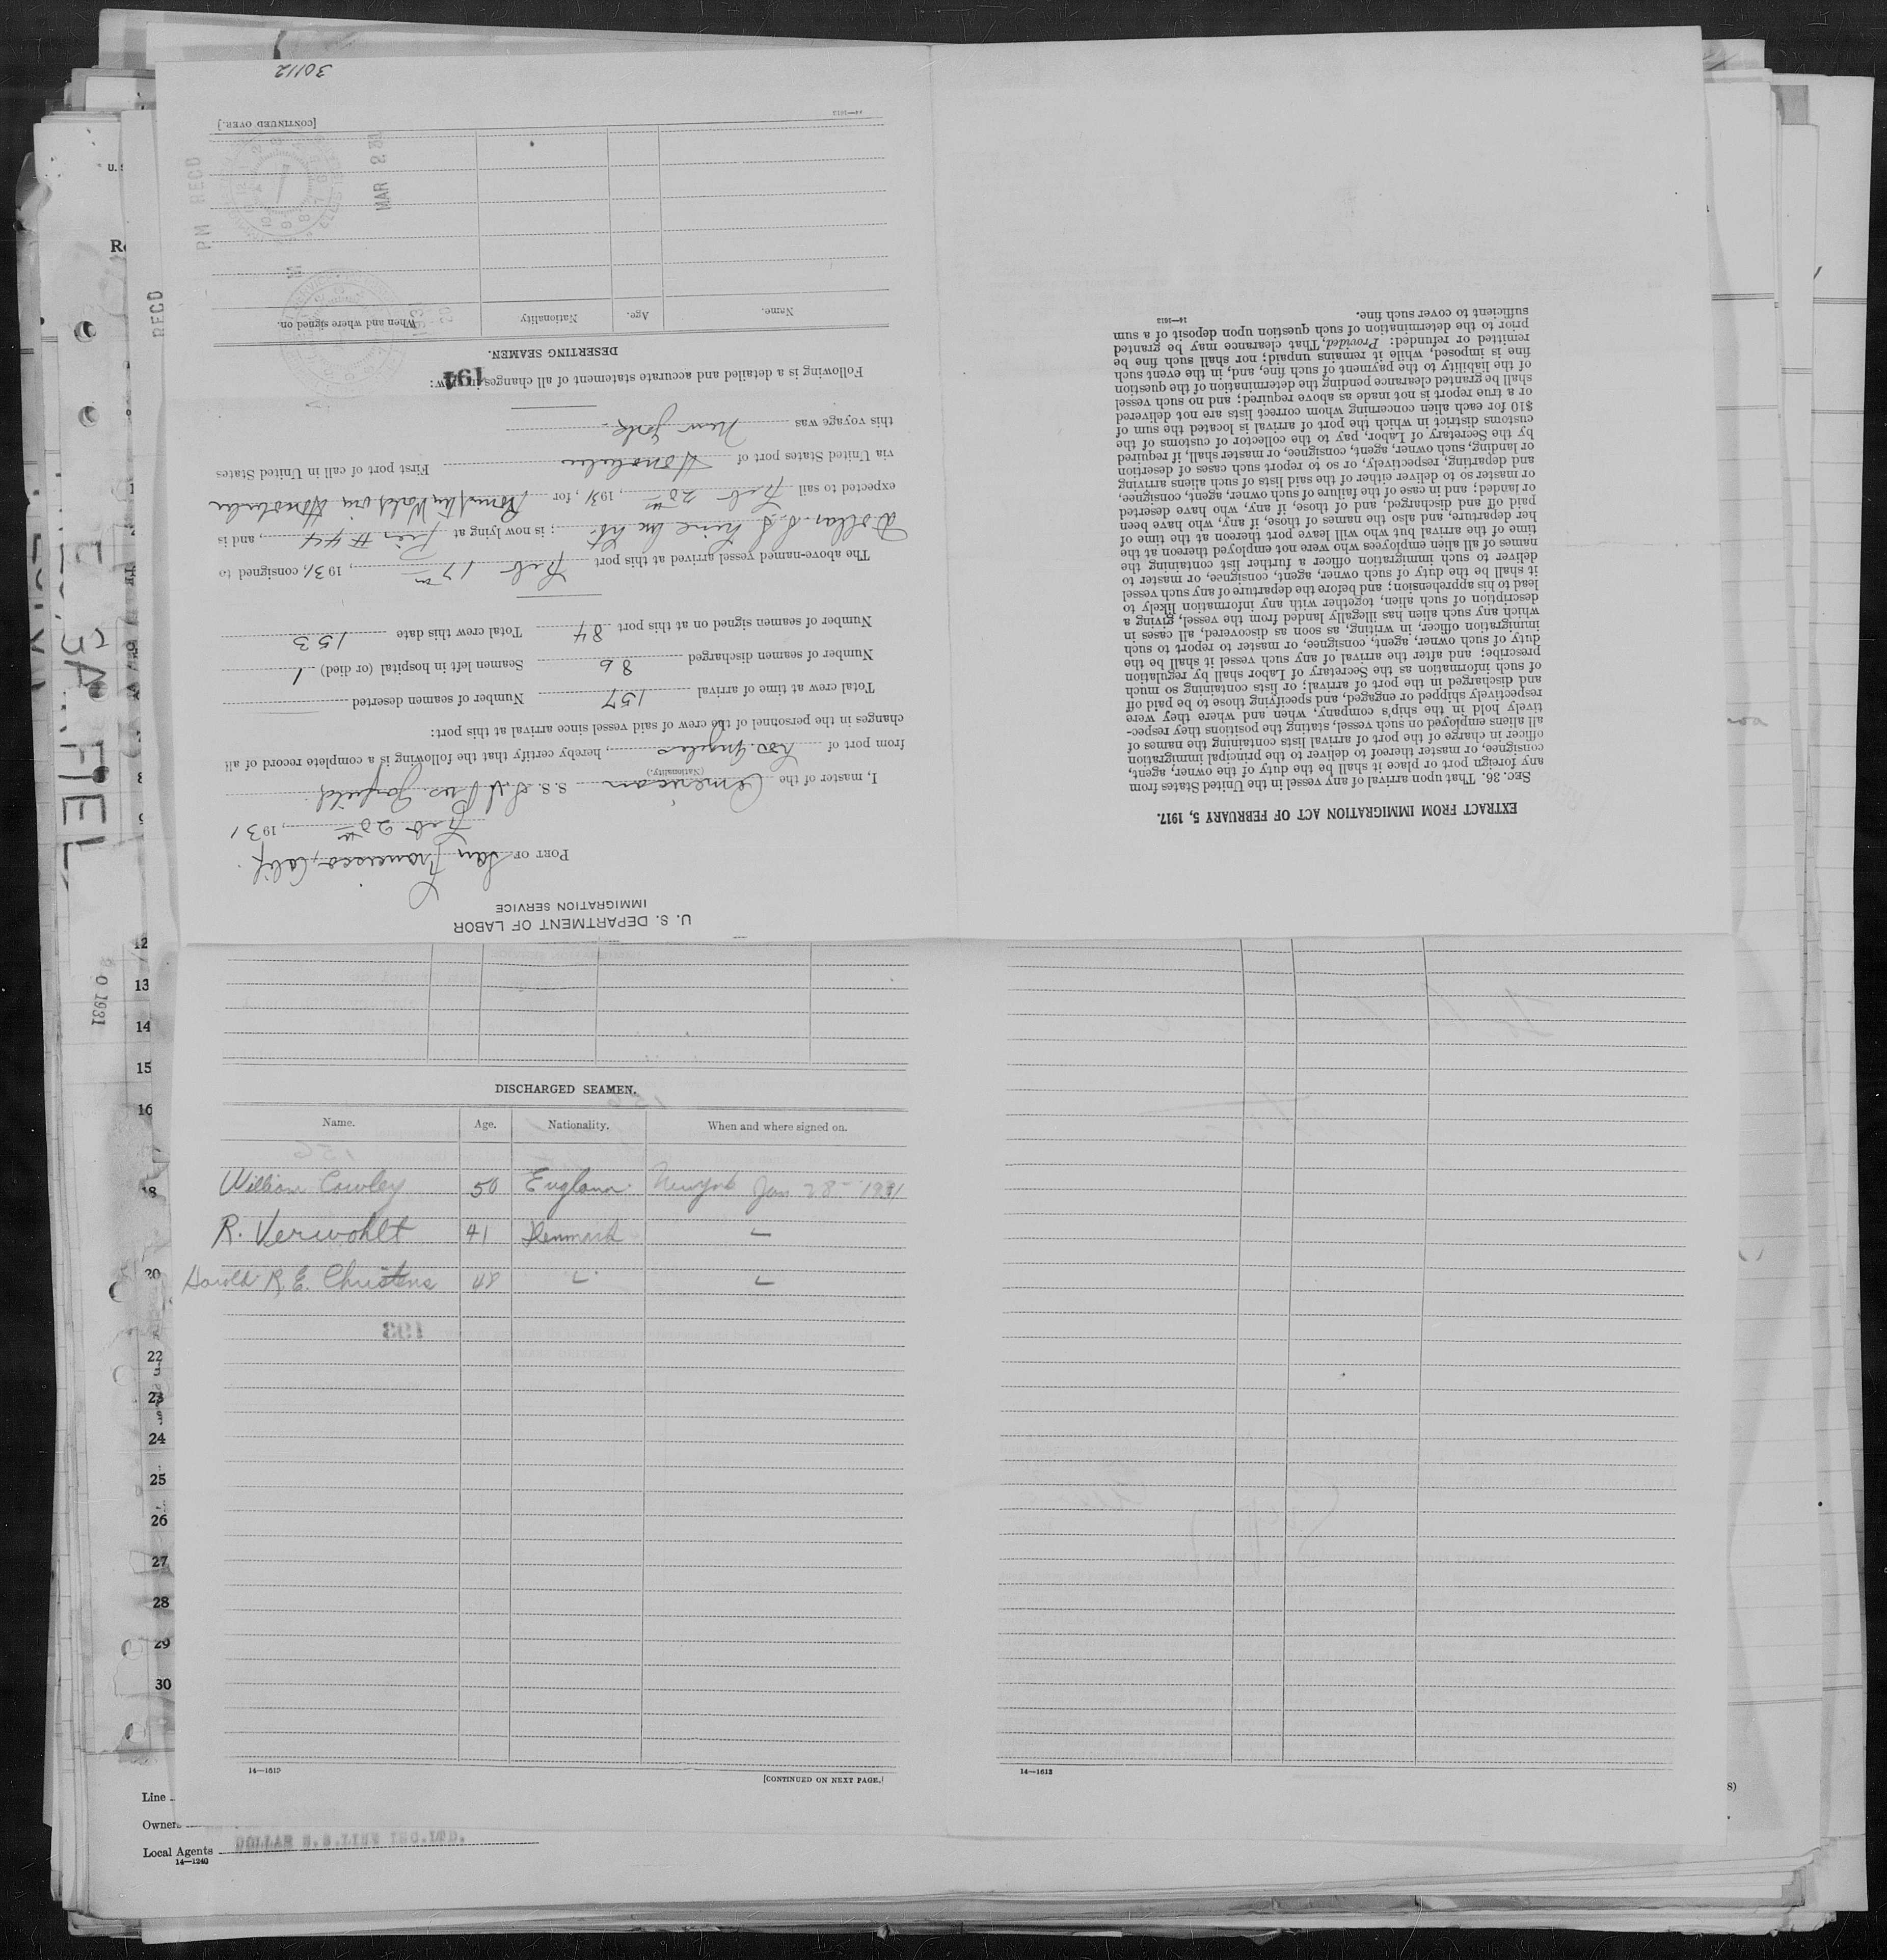 30112
U. S. DEPARTMENT OF LABOR
IMMIGRATION SERVICE
PORT OF San Francisco, Calif.
Feb 20th, 1931
I, master of the American S. S. Pres Garfield
(Nationality.)
from port of Los Angeles, hereby certify that the following is a complete record of all
changes in the personnel of the crew of said vessel since arrival at this port:
Total crew at time of arrival 157 Number of seamen deserted
Number of seamen discharged 86 Seamen left in hospital (or died) 1
Number of seamen signed on at this port 84 Total crew this date 153
The above-named vessel arrived at this port Feb 17th, 1931, consigned to
Dollar S. S. Line Inc Ltd.; is now lying at Pier #44, and is
expected to sail Feb 20th, 1931, for Round the World via Honolulu
via United States port of Honolulu First port of call in United States
this voyage was New York.
Following is a detailed and accurate statement of all changes in crew:
194
DESERTING SEAMEN.
Name. Age. Nationality When and where signed on.
PM RECD
MAR 2 31
14—1613 [CONTINUED OVER.]
EXTRACT FROM IMMIGRATION ACT OF FEBRUARY 5, 1917.
SEC. 36. That upon arrival of any vessel in the United States from
any foreign port or place it shall be the duty of the owner, agent,
consignee, or master thereof to deliver to the principal immigration
officer in charge of the port of arrival lists containing the names of
all aliens employed on such vessel, stating the positions they respec-
tively hold in the ship's company, when and where they were
respectively shipped or engaged, and specifying those to be paid off
and discharged in the port of arrival; or lists containing so much
of such information as the Secretary of Labor shall by regulation
prescribe; and after the arrival of any such vessel it shall be the
duty of such owner, agent, consignee, or master to report to such
immigration officer, in writing, as soon as discovered, all cases in
which any such alien has illegally landed from the vessel, giving a
description of such alien, together with any information likely to
lead to his apprehension; and before the departure of any such vessel
it shall be the duty of such owner, agent, consignee, or master to
deliver to such immigration officer a further list containing the
names of all alien employees who were not employed thereon at the
time of the arrival but who will leave port thereon at the time of
her departure, and also the names of those, if any, who have been
paid off and discharged, and of those, if any, who have deserted
or landed; and in case of the failure of such owner, agent, consignee,
or master so to deliver either of the said lists of such aliens arriving
and departing, respectively, or so to report such cases of desertion
or landing, such owner, agent, consignee, or master, shall, if required
by the Secretary of Labor, pay to the collector of customs of the
customs district in which the port of arrival is located the sum of
$10 for each alien concerning whom correct lists are not delivered
or a true report is not made as above required; and no such vessel
shall be granted clearance pending the determination of the question
of the liability to the payment of such fine, and, in the event such
fine is imposed, while it remains unpaid; nor shall such fine be
remitted or refunded: Provided, That clearance may be granted
prior to the determination of such question upon deposit of a sum
sufficient to cover such fine.
14—1613
DISCHARGED SEAMEN.
Name. Age. Nationality. When and where signed on.
William Cowley 50 England New York Jan 28 - 1931
R. Verwohlt 41 Denmark "
Harold R. E. Christens 48 " "
14—1613
[CONTINUED ON NEXT PAGE.]
14—1613
RECD
12
13
14
15
16
18
20
22
23
24
25
26
27
28
29
30
Line
Owners
Local Agents DOLLAR S.S. LINE INC.LTD.
14—1240